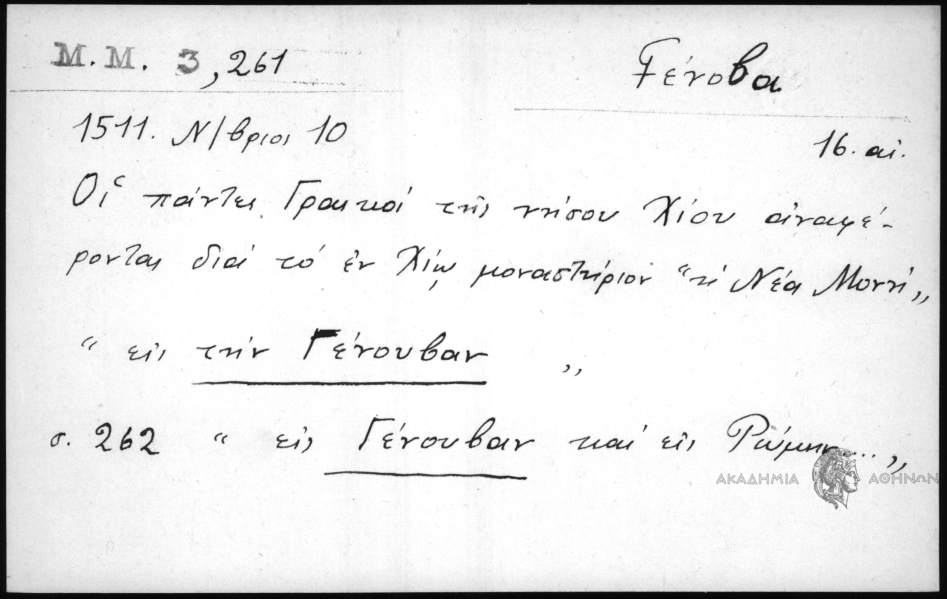 Μ.Μ. 3, 261
Γένοβα
1511. Ν/βριοι 10
16. αἰ.
Οἱ πάντες Γραικοί τῆς νήσου Χίου ἀναφέ-
ροντας διά τό ἐν Χίῳ μοναστήριον "ἡ Νέα Μονή„
" εἰς τήν Γένουβαν „
σ. 262 " εἰς Γένουβαν καί εἰς Ρώμην...„
ΑΚΑΔΗΜΙΑ ΑΘΗΝΩΝ